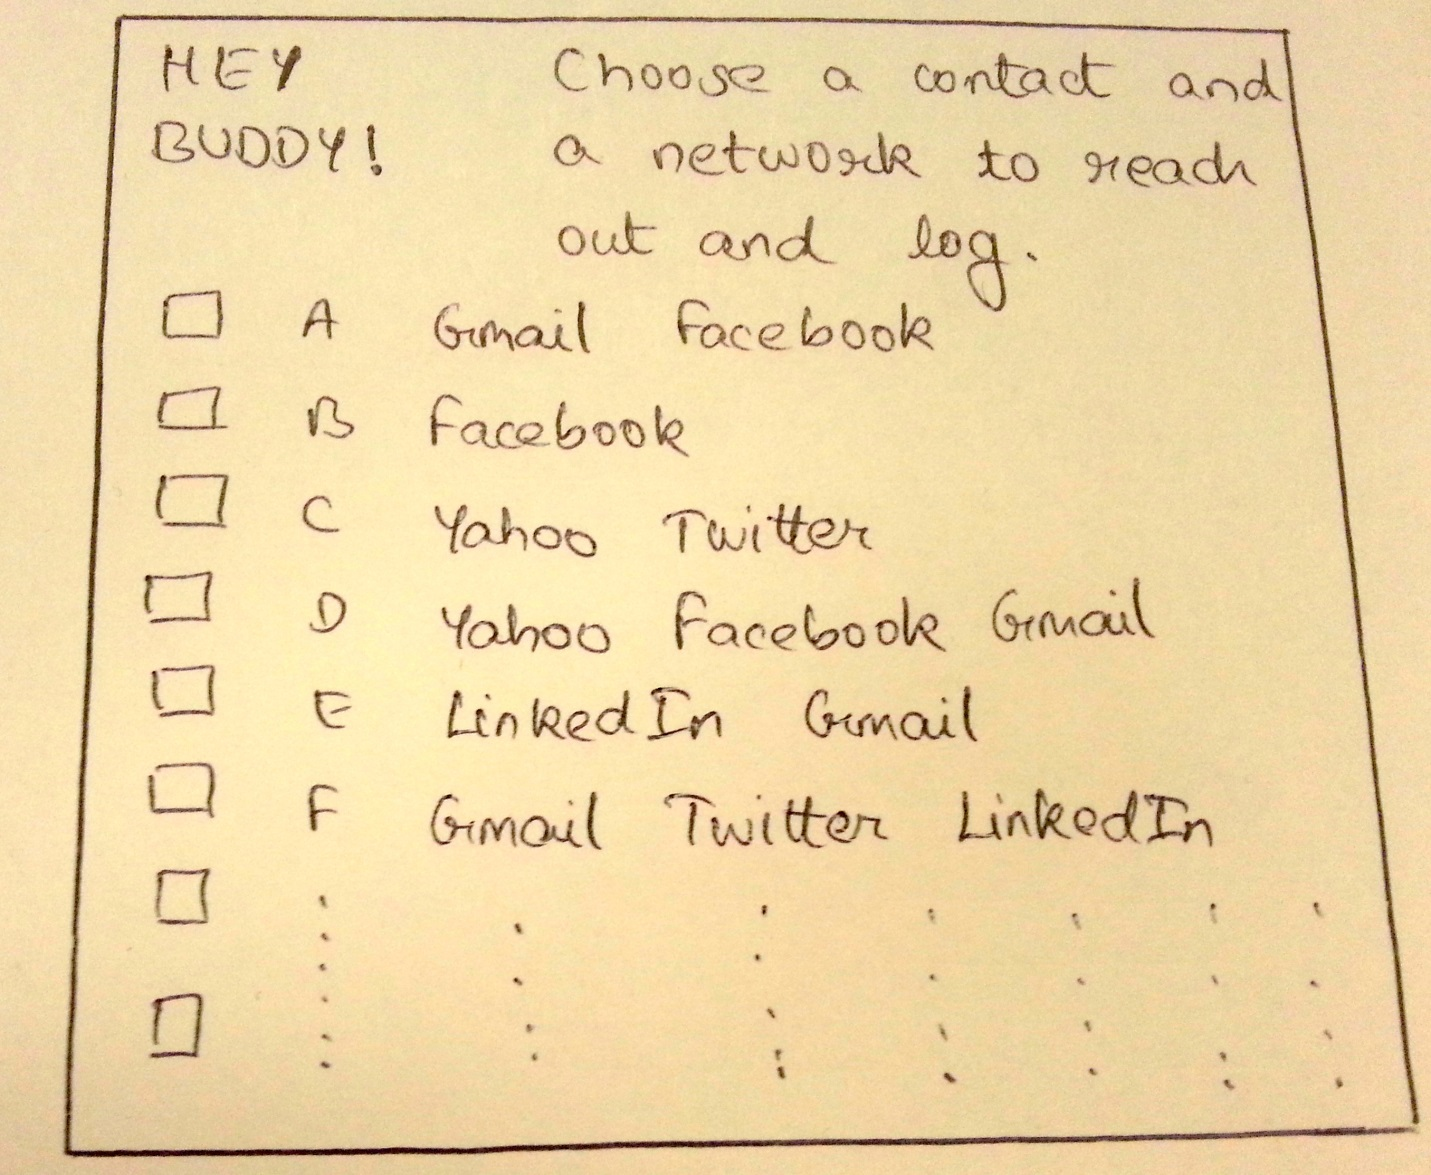 HEY Choose a contact and
BUDDY! a network to reach
out and log.
A Gmail Facebook
B Facebook
C Yahoo Twitter
D Yahoo Facebook Gmail
E LinkedIn Gmail
F Gmail Twitter LinkedIn